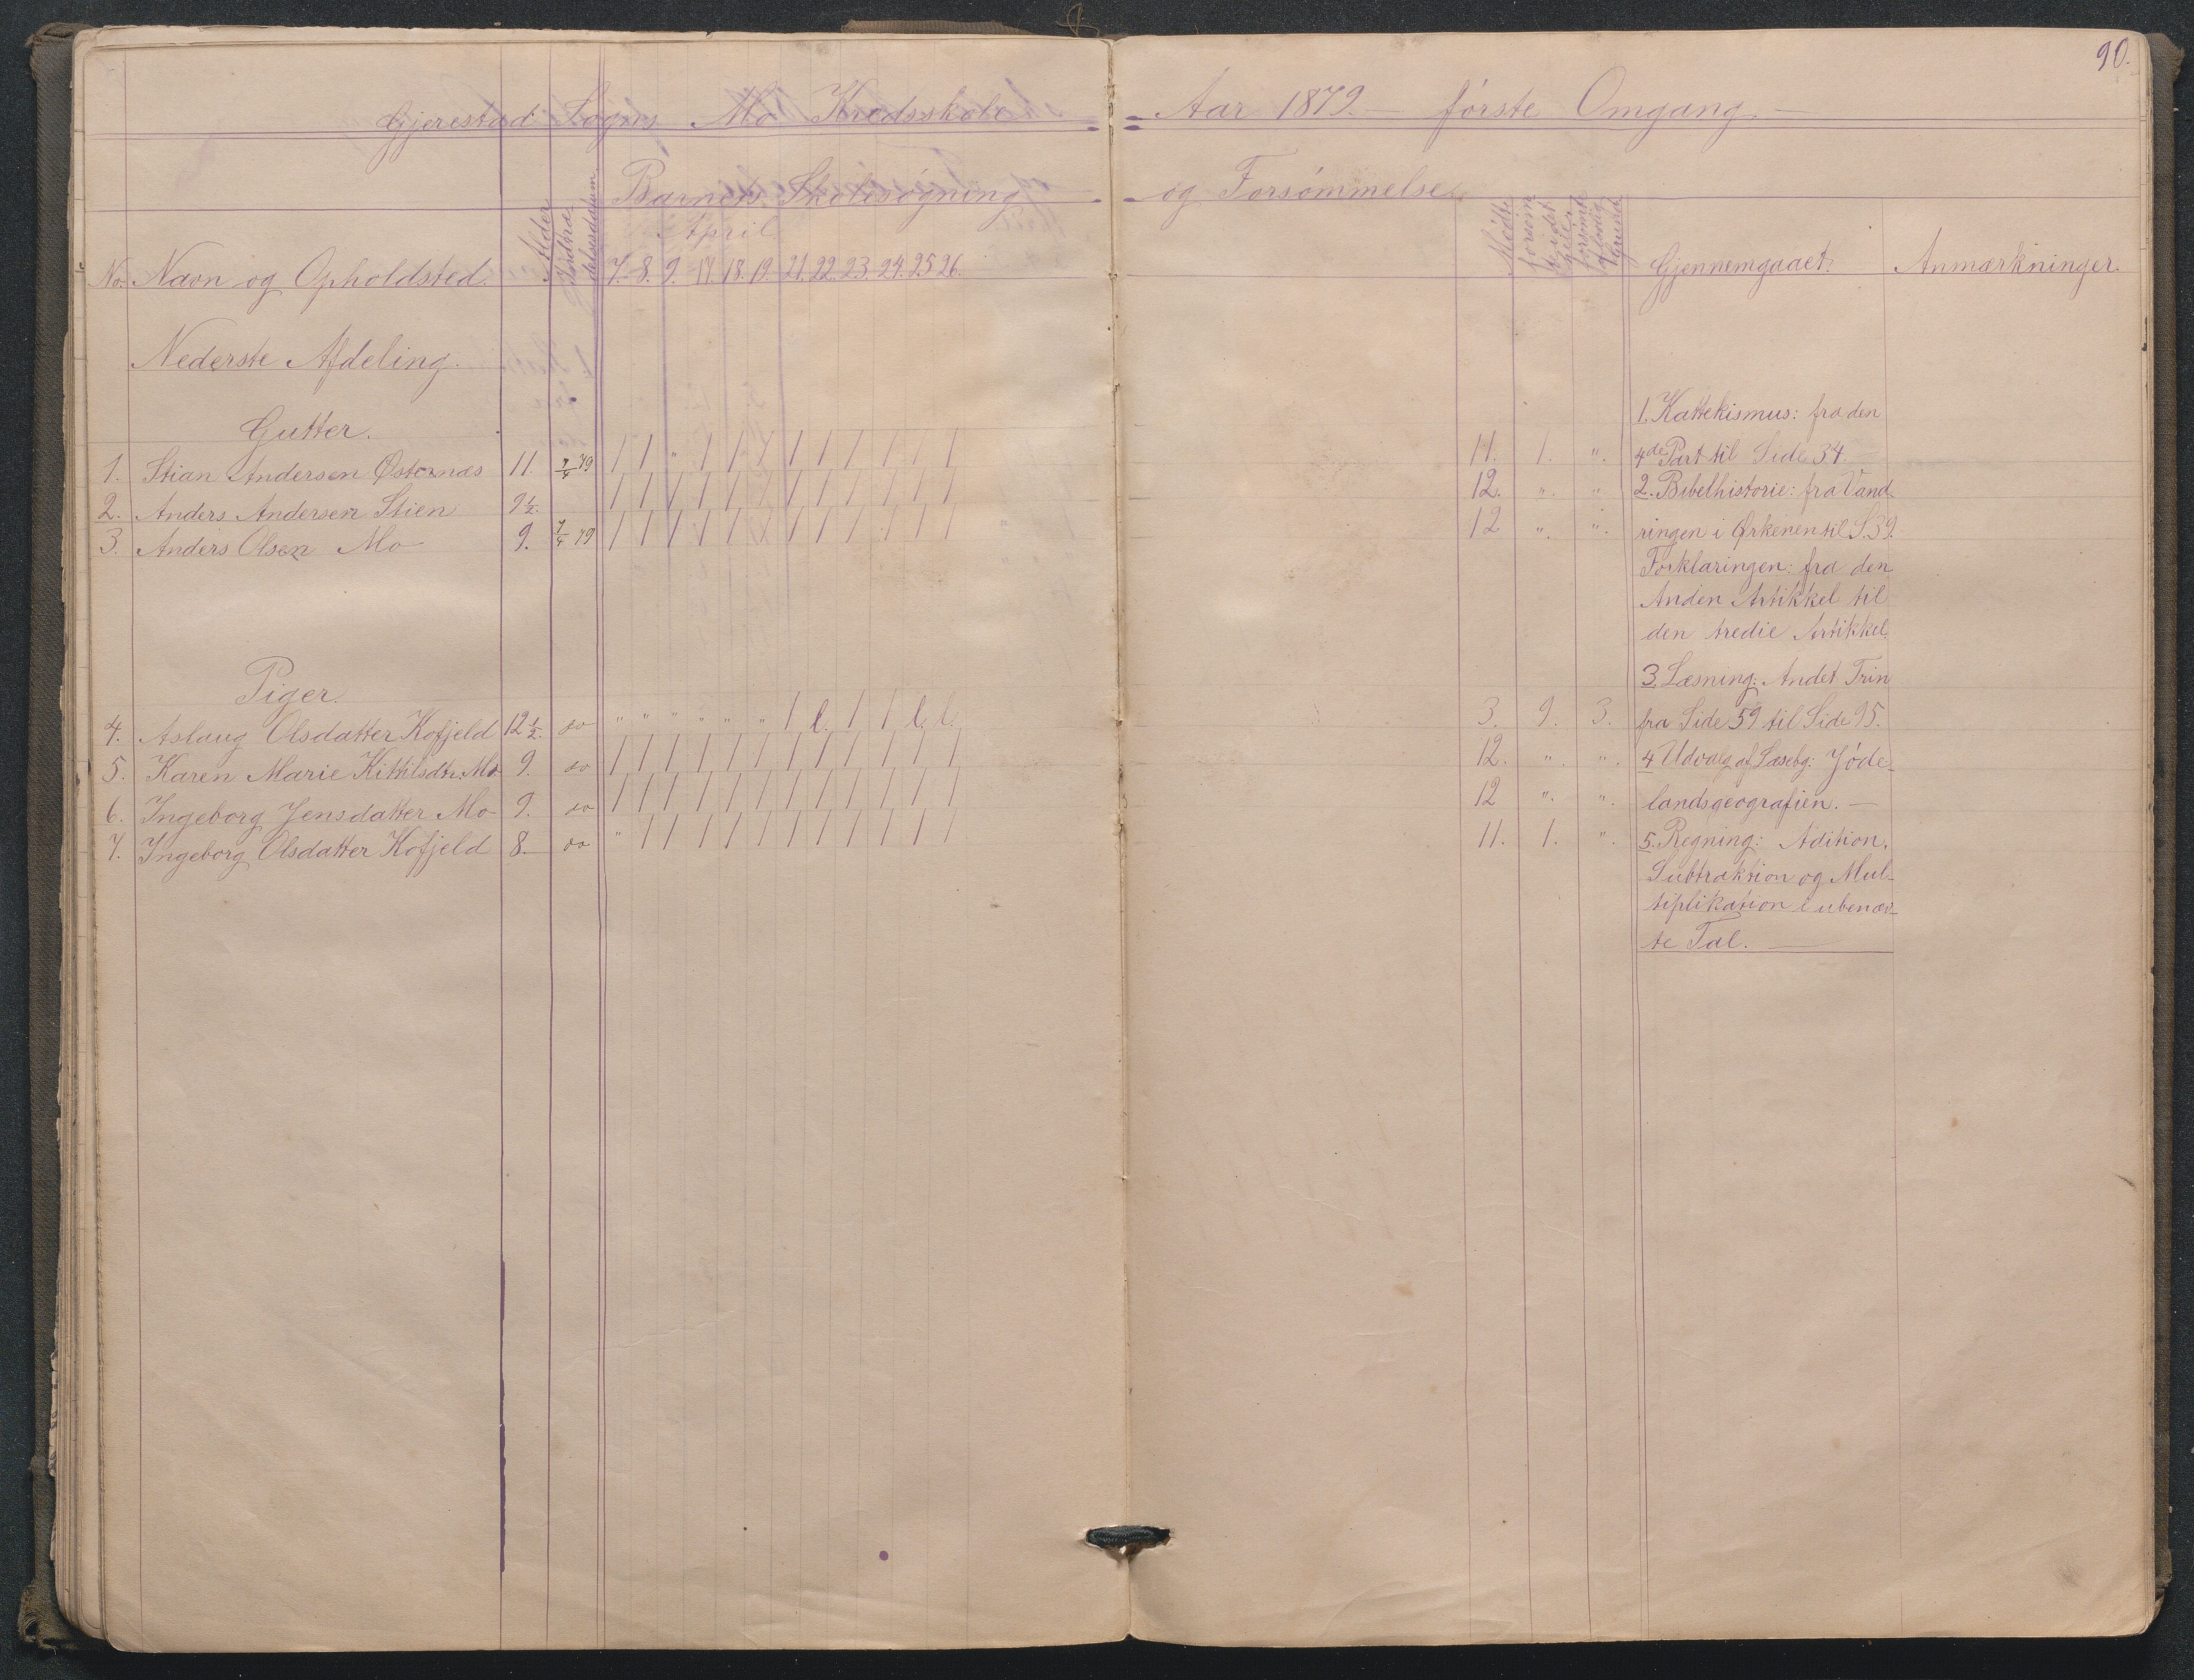 90.
Gjerestad Sogns Mo Kredsskole Aar 1879. — første Omgang —
Barnets Skolesøgning og Forsømmelse.
April
No. Navn og Opholdsted. Alder Indtrædelsesdatum 7. 8. 9. 17. 18. 19. 21. 22. 23. 24. 25 26. Mødt Gjennemgaaet: Anmærkninger.
Nederste Afdeling.
1. Kattekismus: fra den
Gutter.
1. Stian Andersen Østernæs 11. 7/4 79 / / " / / / / / / / / / 11. 1. ". 4de Part til Side 34.
2. Anders Andersen Stien 9 1/2. / / / / / / / / / / / / 12. ". " 2. Bibelhistorie: fra Vand-
3. Anders Olsen Mo 9. 7/4 79 / / / / / / / / / / / / 12 ". ". ringen i Ørkenen til S. 39.
Forklaringen: fra den
Anden Artikkel til
den tredie Artikkel.
3. Læsning: Andet Trin
Piger.
4. Aslaug Olsdatter Kofjeld 12 1/2. do " " " " " " / l. / / l. l. 3. 9. 3. fra Side 59 til Side 95.
5. Karen Marie Kittilsdtr. Mo 9. do / / / / / / / / / / / / 12. ". ". 4 Udvalg af Læsebg: Jøde-
6. Ingeborg Jensdatter Mo 9. do / / / / / / / / / / / / 12 ". ". landsgeografien. —
7. Ingeborg Olsdatter Kofjeld 8. do " / / / / / / / / / / / 11. 1. ". 5. Regning: Adition,
Subtraktion og Mul-
tiplikation i ubenæv-
te Tal. —